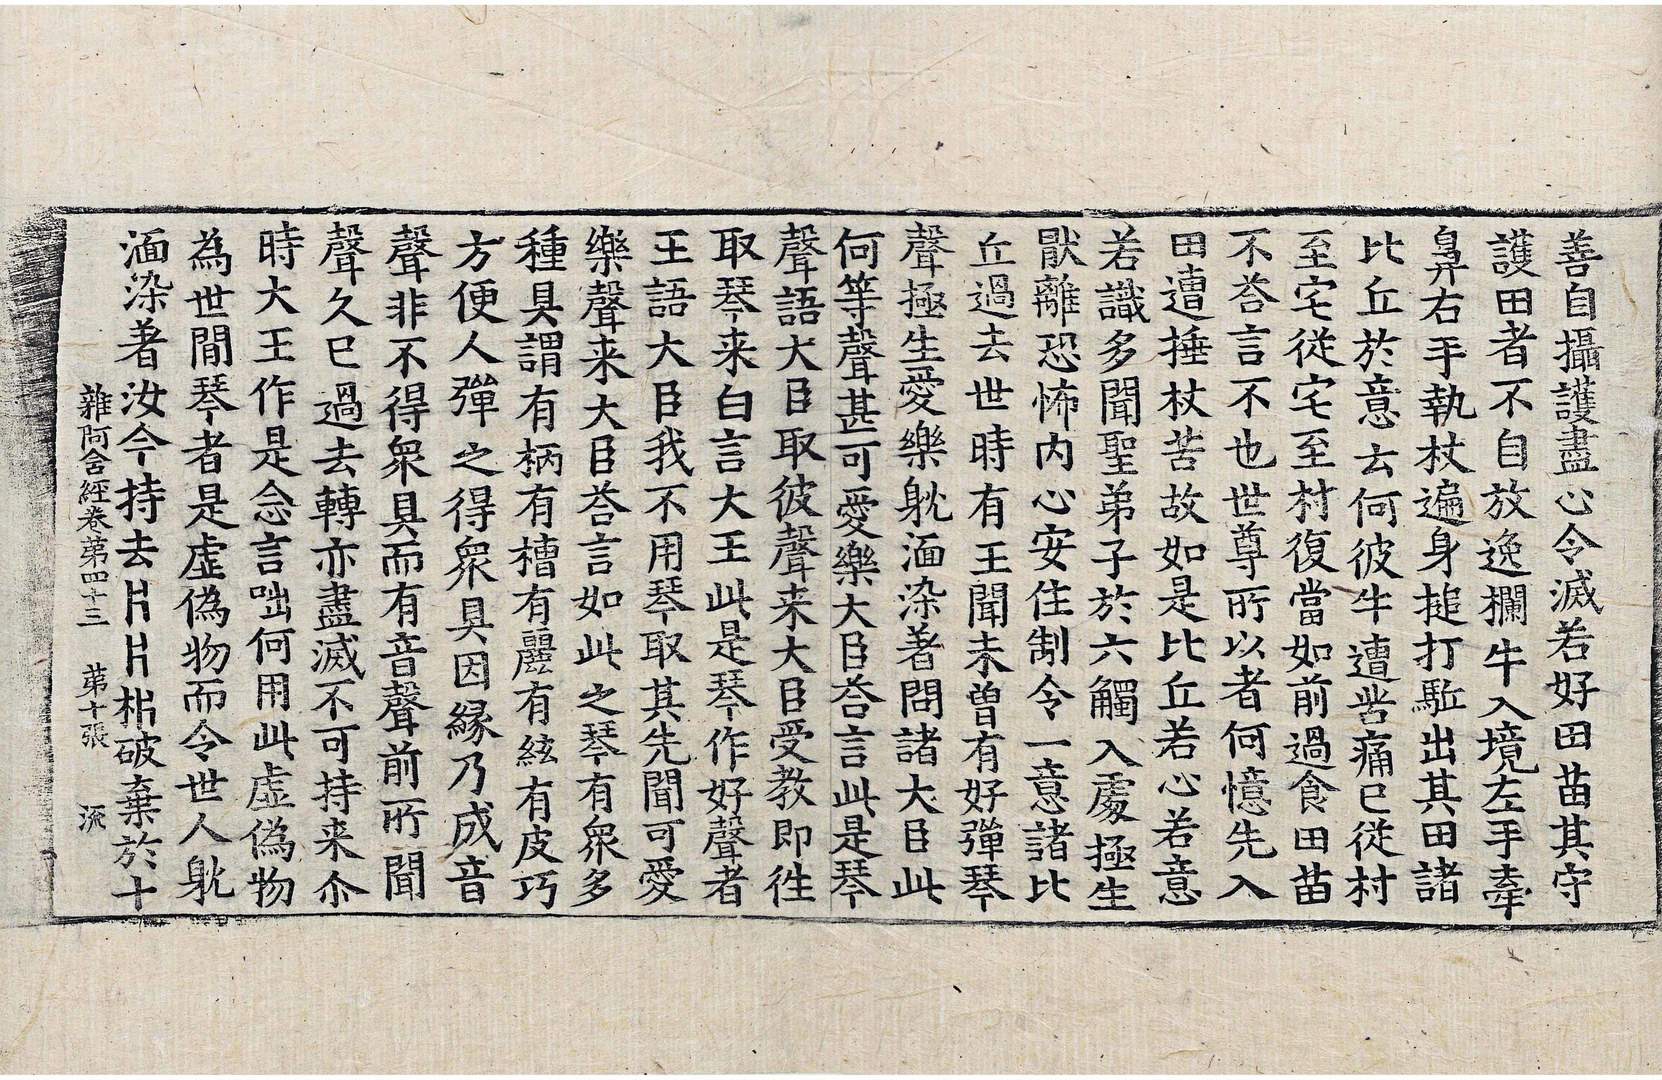 善自攝護盡心令滅若好田苗其守
護田者不自放逸欄牛入境左手牽
鼻右手執杖遍身搥打駈出其田諸
比丘於意云何彼牛遭苦痛已從村
至宅從宅至村復當如前過食田苗
不荅言不也世尊所以者何憶先入
田遭捶杖苦故如是比丘若心若意
若識多聞聖弟子於六觸入處極生
猒離恐怖內心安住制令一意諸比
丘過去世時有王聞未曾有好彈琴
聲極生愛樂躭湎染著問諸大臣此
何等聲甚可愛樂大臣荅言此是琴
聲語大臣取彼聲来大臣受教即徃
取琴来白言大王此是琴作好聲者
王語大臣我不用琴取其先聞可愛
樂聲来大臣荅言如此之琴有衆多
種具謂有柄有槽有麗有絃有皮巧
方便人彈之得衆具因緣乃成音
聲非不得衆具而有音聲前所聞
聲久已過去轉亦盡滅不可持来尒
時大王作是念言咄何用此虛偽物
為世間琴者是虛偽物而令世人躭
湎染著汝今持去片片析破棄於十
雜阿含經卷第四十三 第十張 流